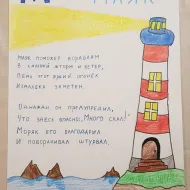 МАЯК
МАЯК ПОМОЖЕТ КОРАБЛЯМ
В СИЛЬНЫЙ ШТОРМ И ВЕТЕР,
ВЕДЬ ЭТОТ ЯРКИЙ ОГОНЁК
ИЗДАЛЕКА ЗАМЕТЕН.
ОДНАЖДЫ ОН ПРЕДУПРЕДИЛ,
ЧТО ЗДЕСЬ ОПАСНО, МНОГО СКАЛ!
МОРЯК ЕГО БЛАГОДАРИЛ
И ПОВОРАЧИВАЛ ШТУРВАЛ.